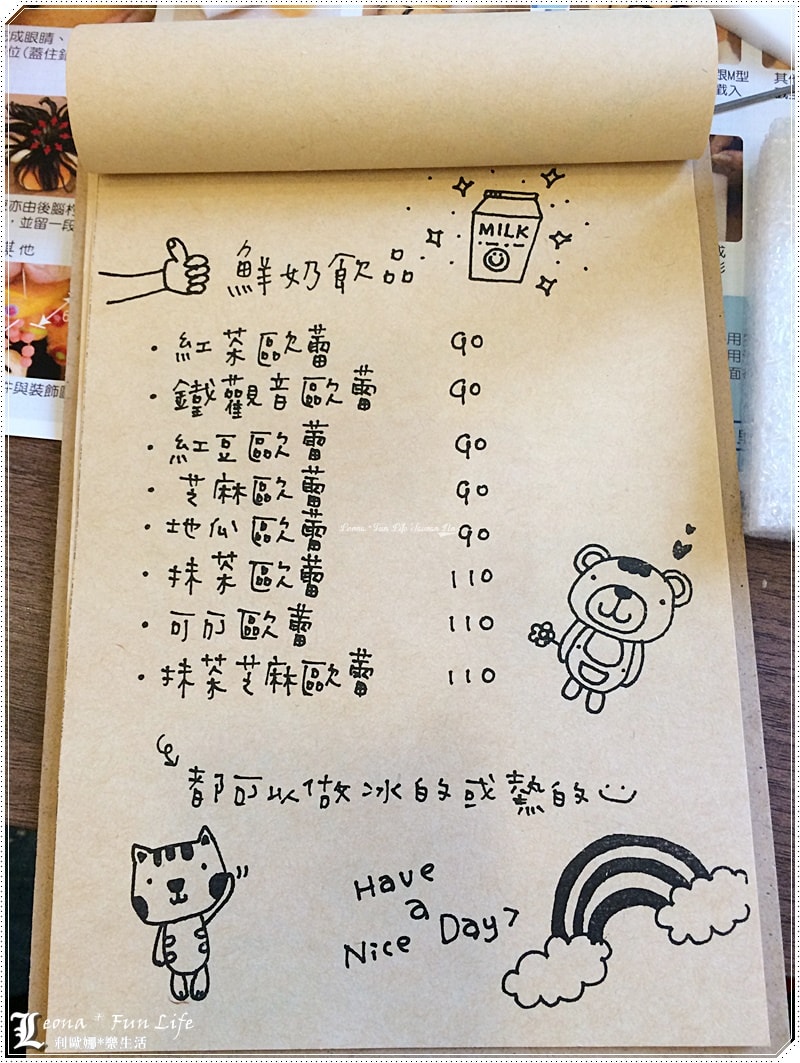 成眼睛、
位(蓋住鈕
跟M型
戴入
亦由後腦杓
，並留一段
其他
件與裝飾
MILK
鮮奶飲品
・紅茶歐蕾 90
・鐵觀音歐蕾 90
・紅豆歐蕾 90
・芝麻歐蕾 90
・地瓜歐蕾 90
・抹茶歐蕾 110
・可可歐蕾 110
・抹茶芝麻歐蕾 110
都可以做冰的或熱的
Have
a
Nice Day
Leona * Fun Life
利歐娜*樂生活